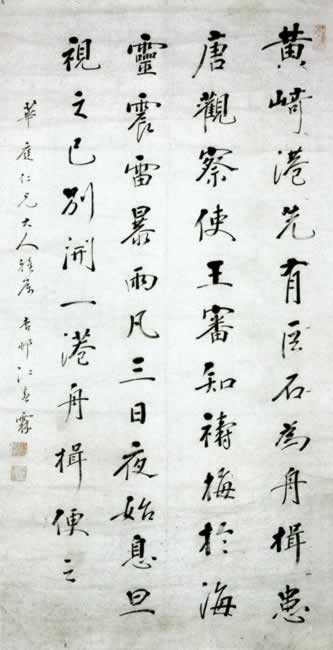 黄崎港先有巨石為舟楫患
唐觀察使王審知禱梅於海
靈震雷暴雨凡三日夜始息旦
視之已別開一港舟楫便之
華庭仁兄大人雅屬 杏邨江春霖